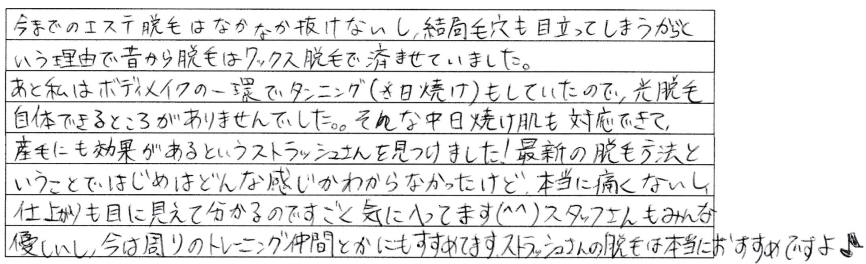 今までのエステ脱毛はなかなか抜けないし,結局毛穴も目立ってしまうからと
いう理由で昔から脱毛はワックス脱毛で済ませていました。
あと私はボディメイクの一環でタンニング(日焼け)もしていたので,光脱毛
自体できるところがありませんでした。。そんな中日焼け肌も対応できて,
産毛にも効果があるというストラッシュさんを見つけました!最新の脱毛方法と
いうことではじめはどんな感じかわからなかったけど,本当に痛くないし,
仕上がりも目に見えて分かるのですごく気に入ってます(^^)スタッフさんもみんな
優しいし,今は周りのトレーニング仲間とかにもすすめてます。ストラッシュさんの脱毛は本当におすすめですよ♪